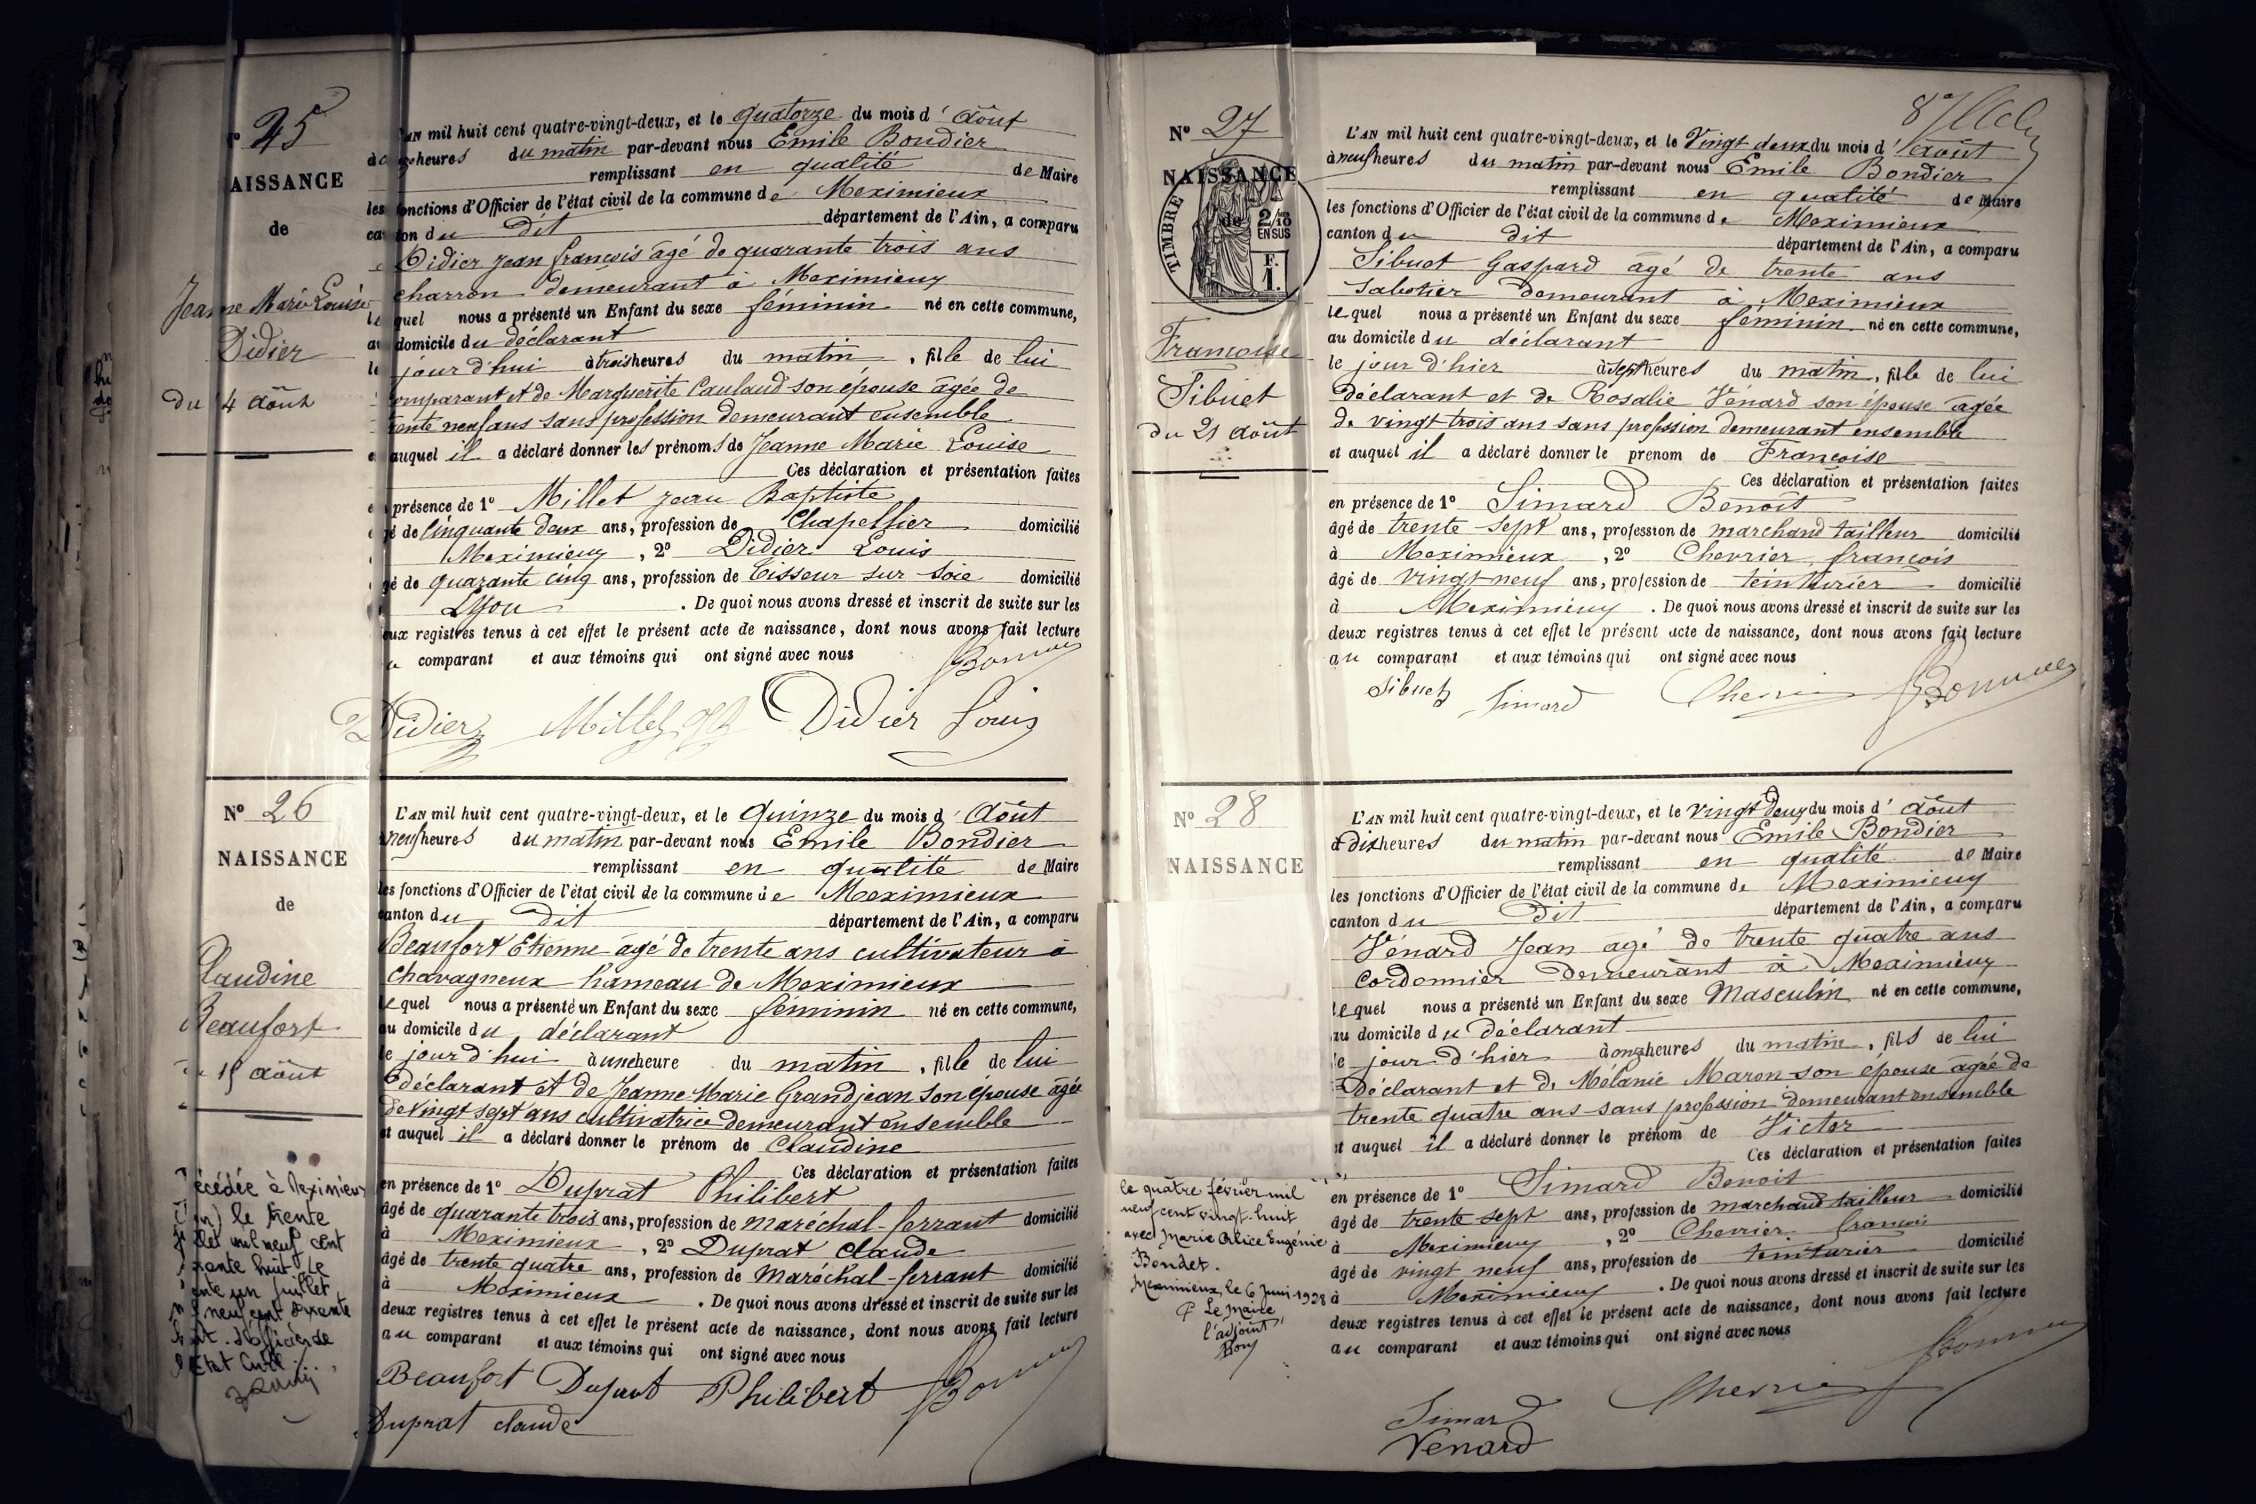 N° 25
NAISSANCE
de
Jeanne Marie Louise
Didier
du 14 Août
L'AN mil huit cent quatre-vingt-deux, et le quatorze du mois d'Août
heures du matin par-devant nous Emile Bondier
remplissant en qualité de Maire
les fonctions d'Officier de l'état civil de la commune de Meximieux
canton du Dit département de l'Ain, a comparu
Didier Jean françois âgé de quarante trois ans
charron demeurant à Meximieux
lequel nous a présenté un Enfant du sexe féminin né en cette commune,
au domicile du déclarant
le jour d'hui à trois heures du matin, fille de lui
comparant et de Marguerite Caulaud son épouse âgée de
trente neuf ans sans profession demeurant ensemble
et auquel il a déclaré donner les prénoms de Jeanne Marie Louise
Ces déclaration et présentation faites
en présence de 1° Millet Jean Baptiste
âgé de Cinquante deux ans, profession de Chapellier domicilié
Meximieux, 2° Didier Louis
âgé de quarante cinq ans, profession de Tisseur sur soie domicilié
Lyon. De quoi nous avons dressé et inscrit de suite sur les
deux registres tenus à cet effet le présent acte de naissance, dont nous avons fait lecture
au comparant et aux témoins qui ont signé avec nous
Didier Millet Didier Louis
N° 26
NAISSANCE
de
Claudine
Beaufort
du 15 Août
Décédée à Meximieux
(Ain) le trente
juillet mil neuf cent
soixante huit. Le
trente un juillet
mil neuf cent soixante
huit. L'officier de
l'Etat Civil
L'AN mil huit cent quatre-vingt-deux, et le Quinze du mois d'Août
à neuf heures du matin par-devant nous Emile Bondier
remplissant en qualité de Maire
les fonctions d'Officier de l'état civil de la commune de Meximieux
canton du Dit département de l'Ain, a comparu
Beaufort Etienne âgé de trente ans cultivateur à
Chavagneux hameau de Meximieux
lequel nous a présenté un Enfant du sexe féminin né en cette commune,
au domicile du déclarant
le jour d'hui à une heure du matin, fille de lui
déclarant et de Jeanne Marie Grandjean son épouse âgée
de vingt sept ans cultivatrice demeurant ensemble
et auquel il a déclaré donner le prénom de Claudine
Ces déclaration et présentation faites
en présence de 1° Duprat Philibert
âgé de quarante trois ans, profession de maréchal-ferrant domicilié
à Meximieux, 2° Duprat Claude
âgé de trente quatre ans, profession de Maréchal-ferrant domicilié
à Meximieux. De quoi nous avons dressé et inscrit de suite sur les
deux registres tenus à cet effet le présent acte de naissance, dont nous avons fait lecture
au comparant et aux témoins qui ont signé avec nous
Beaufort Duprat Philibert
Duprat claude
N° 27
NAISSANCE
de
TIMBRE
2/10 EN SUS
F. 1.
Françoise
Sibuet
du 21 Août
L'AN mil huit cent quatre-vingt-deux, et le Vingt deux du mois d'Août
à neuf heures du matin par-devant nous Emile Bondier
remplissant en qualité de Maire
les fonctions d'Officier de l'état civil de la commune de Meximieux
canton du dit département de l'Ain, a comparu
Sibuet Gaspard âgé de trente ans
sabotier demeurant à Meximieux
lequel nous a présenté un Enfant du sexe féminin né en cette commune,
au domicile du déclarant
le jour d'hier à sept heures du matin, fille de lui
déclarant et de Rosalie Vénard son épouse âgée
de vingt trois ans sans profession demeurant ensemble
et auquel il a déclaré donner le prenom de Françoise
Ces déclaration et présentation faites
en présence de 1° Simard Benoît
âgé de trente-sept ans, profession de marchand tailleur domicilié
à Meximieux, 2° Chevrier françois
âgé de vingt neuf ans, profession de teinturier domicilié
à Meximieux. De quoi nous avons dressé et inscrit de suite sur les
deux registres tenus à cet effet le présent acte de naissance, dont nous avons fait lecture
au comparant et aux témoins qui ont signé avec nous
Sibuet Simard Chevrier
N° 28
NAISSANCE
le quatre février mil
neuf cent vingt-huit
avec Marie Alice Eugénie
Bondet.
Meximieux, le 6 Juin 1928
P. Le Maire
l'adjoint
L'AN mil huit cent quatre-vingt-deux, et le vingt Deux du mois d'Août
à dix heures du matin par-devant nous Emile Bondier
remplissant en qualité de Maire
les fonctions d'Officier de l'état civil de la commune de Meximieux
canton du Dit département de l'Ain, a comparu
Vénard Jean agé de trente quatre ans
Cordonnier Demeurant à Meximieux
lequel nous a présenté un Enfant du sexe Masculin né en cette commune,
au domicile du Déclarant
le jour d'hier à onze heures du matin, fils de lui
Déclarant et de Mélanie Maron son épouse agée de
trente quatre ans sans profession demeurant ensemble
et auquel il a déclaré donner le prénom de Victor
Ces déclaration et présentation faites
en présence de 1° Simard Benoit
âgé de trente sept ans, profession de marchand tailleur domicilié
à Meximieux, 2° Chevrier françois
âgé de vingt neuf ans, profession de teinturier domicilié
à Meximieux. De quoi nous avons dressé et inscrit de suite sur les
deux registres tenus à cet effet le présent acte de naissance, dont nous avons fait lecture
au comparant et aux témoins qui ont signé avec nous
Chevrier
Simard
Venard